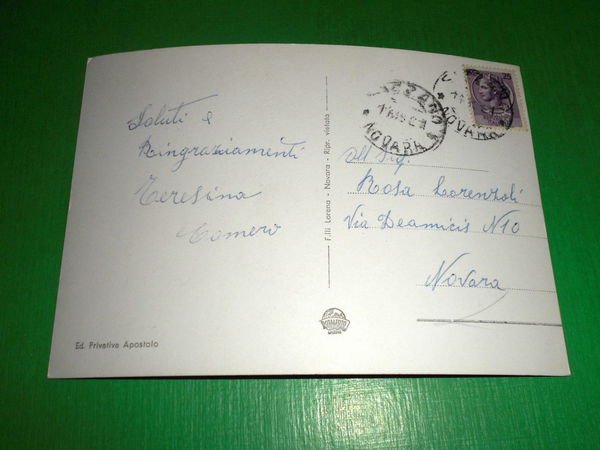 Saluti e
Ringraziamenti
Teresina
Comero
Ed. Privativa Apostolo
F.lli Lorena - Novara - Ripr. vietata
25
NOVARA
NOVARA
All Sig.
Rosa Lorenzoli
Via Deamicis N 10
Novara